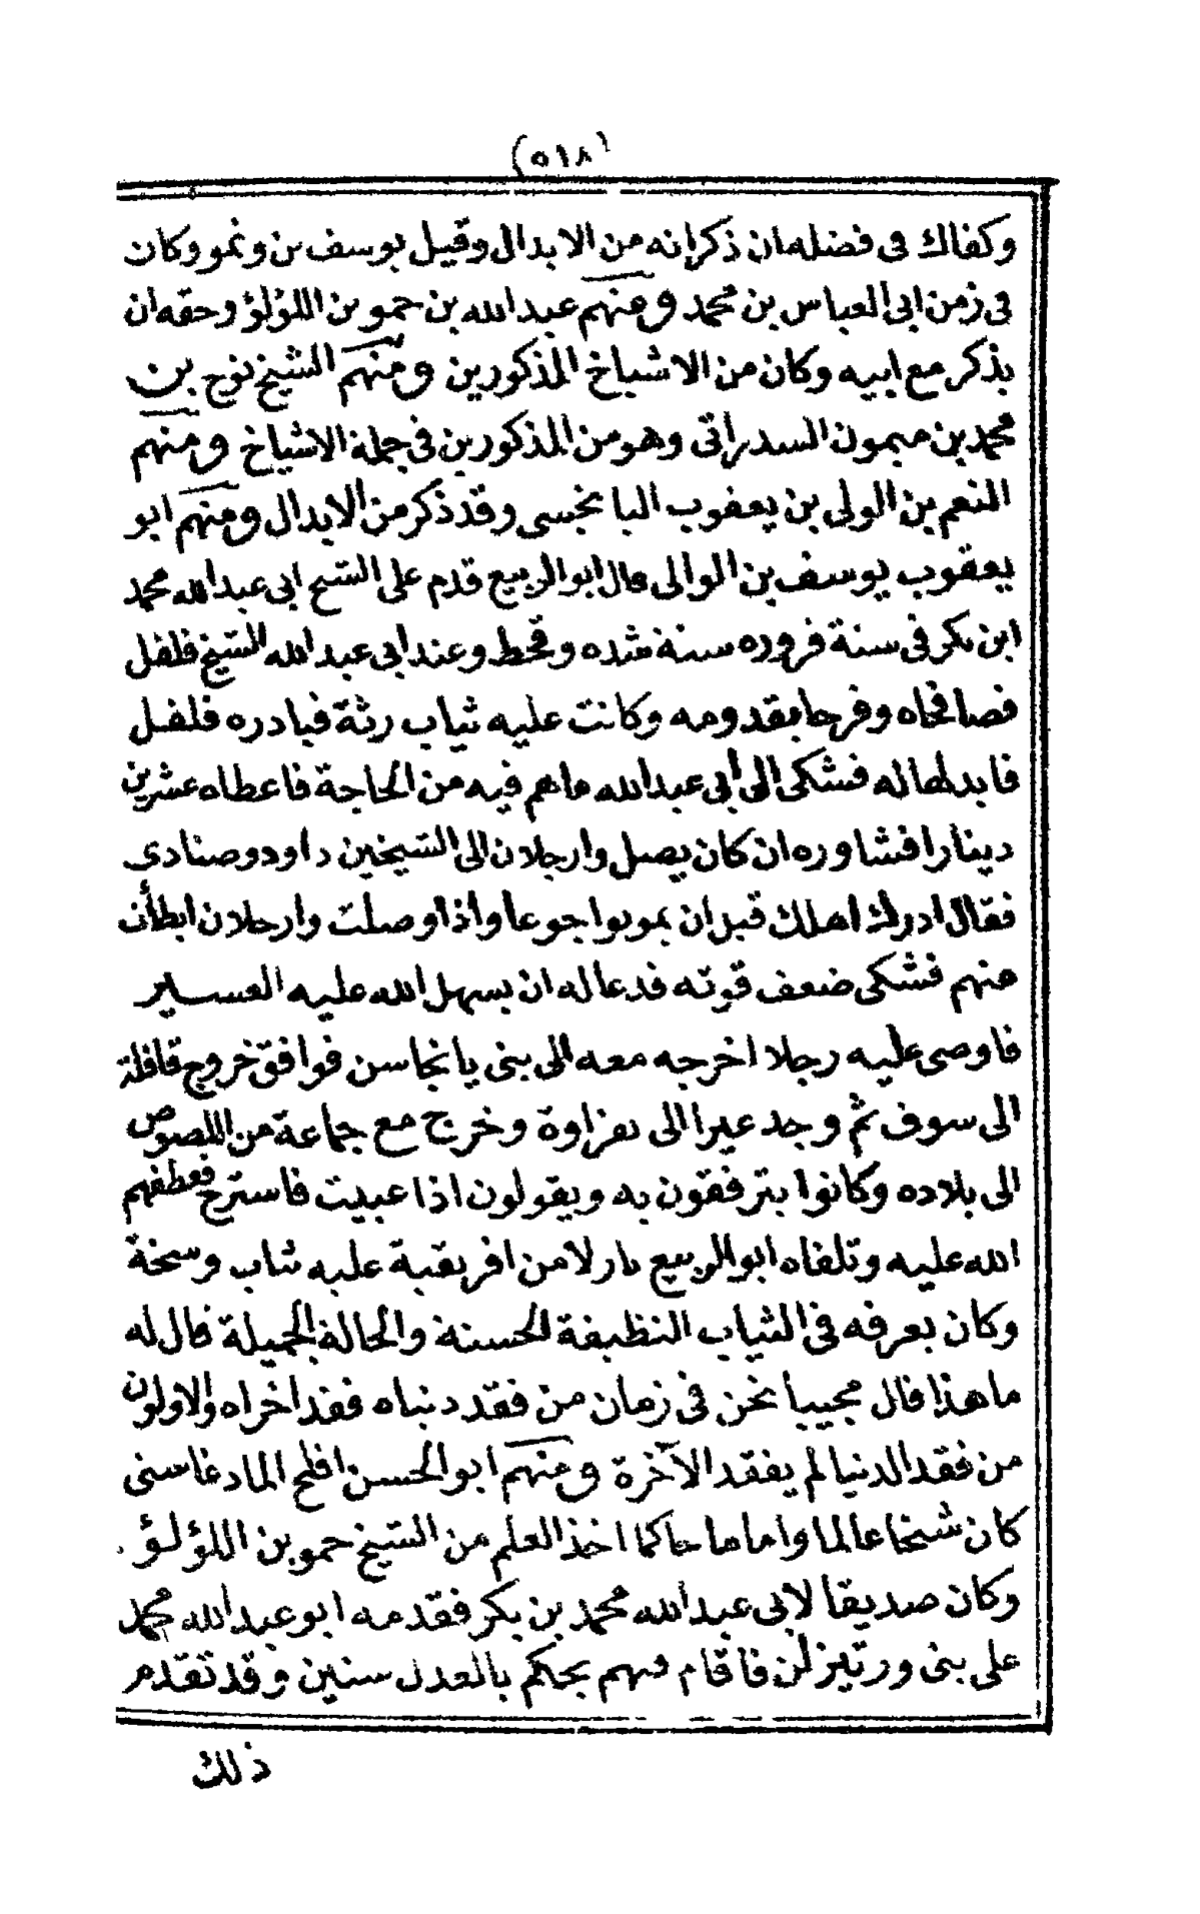 (٥١٨)
وكفاك فى فضله ان ذكر انه من الابدال وقيل يوسف بن ونمو وكان
فى زمن ابى العباس بن محمد ومنهم عبد الله بن حمو بن اللؤلؤ وحقه ان
يذكر مع ابيه وكان من الاشياخ المذكورين ومنهم الشيخ نوح بن
محمد بن ميمون السدراتى وهو من المذكورين فى جملة الاشياخ ومنهم
المنعم بن الولى بن يعقوب البانجسى وقد ذكر من الابدال ومنهم ابو
يعقوب يوسف بن الوالى قال ابو الربيع قدم على الشيخ ابى عبد الله محمد
ابن بكر فى سنة فروره سنة شده وقحط وعند ابى عبد الله الشيخ فلفل
فصافحاه وفرحا بقدومه وكانت عليه ثياب رثة فبادره فلفل
فابدلها له فشكى الى أبى عبد الله ما هم فيه من الحاجة فاعطاه عشرين
دينارا فشاوره ان كان يصل وارجلان الى الشيخين داود وصنادى
فقال ادرك اهلك قبل ان يموتوا جوعا واذا وصلت وارجلان ابطأت
عنهم فشكى ضعف قوته فدعا له ان يسهل الله عليه العسير
فاوصى عليه رجلا اخرجه معه الى بنى يانجاسن فوافق خروج قافلة
الى سوف ثم وجد عيرا الى نفزاوة وخرج مع جماعة من اللصوص
الى بلاده وكانوا يترفقون به ويقولون اذا عييت فاسترح فعطفهم
الله عليه وتلقاه ابو الربيع نازلا من افريقية عليه ثياب وسخة
وكان يعرفه فى الثياب النظيفة الحسنة والحالة الجميلة فقال له
ما هذا قال مجيبا نحن فى زمان من فقد دنياه فقد اخراه والاولون
من فقد الدنيا لم يفقد الآخرة ومنهم ابو الحسن افلح المادغاسنى
كان شيخا عالما واماما حاكما اخذ العلم من الشيخ حمو بن اللؤلؤ
وكان صديقا لابى عبد الله محمد بن بكر فقدمه ابو عبد الله محمد
على بنى ورتيزلن فاقام فيهم يحكم بالعدل سنين وقد تقدم
ذلك